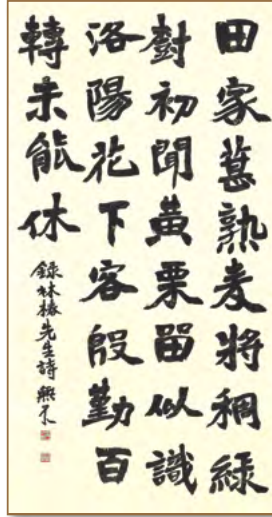 田家葚熟麦將稠綠
樹初聞黃栗留似識
洛陽花下客殷勤百
轉未能休
錄林椿先生詩